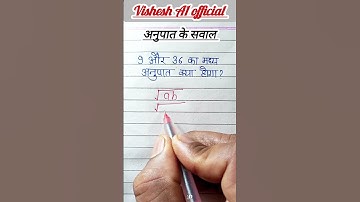 Vishesh AI official
अनुपात के सवाल
9 और 36 का मध्य
अनुपात क्या होगा?
√ab
√